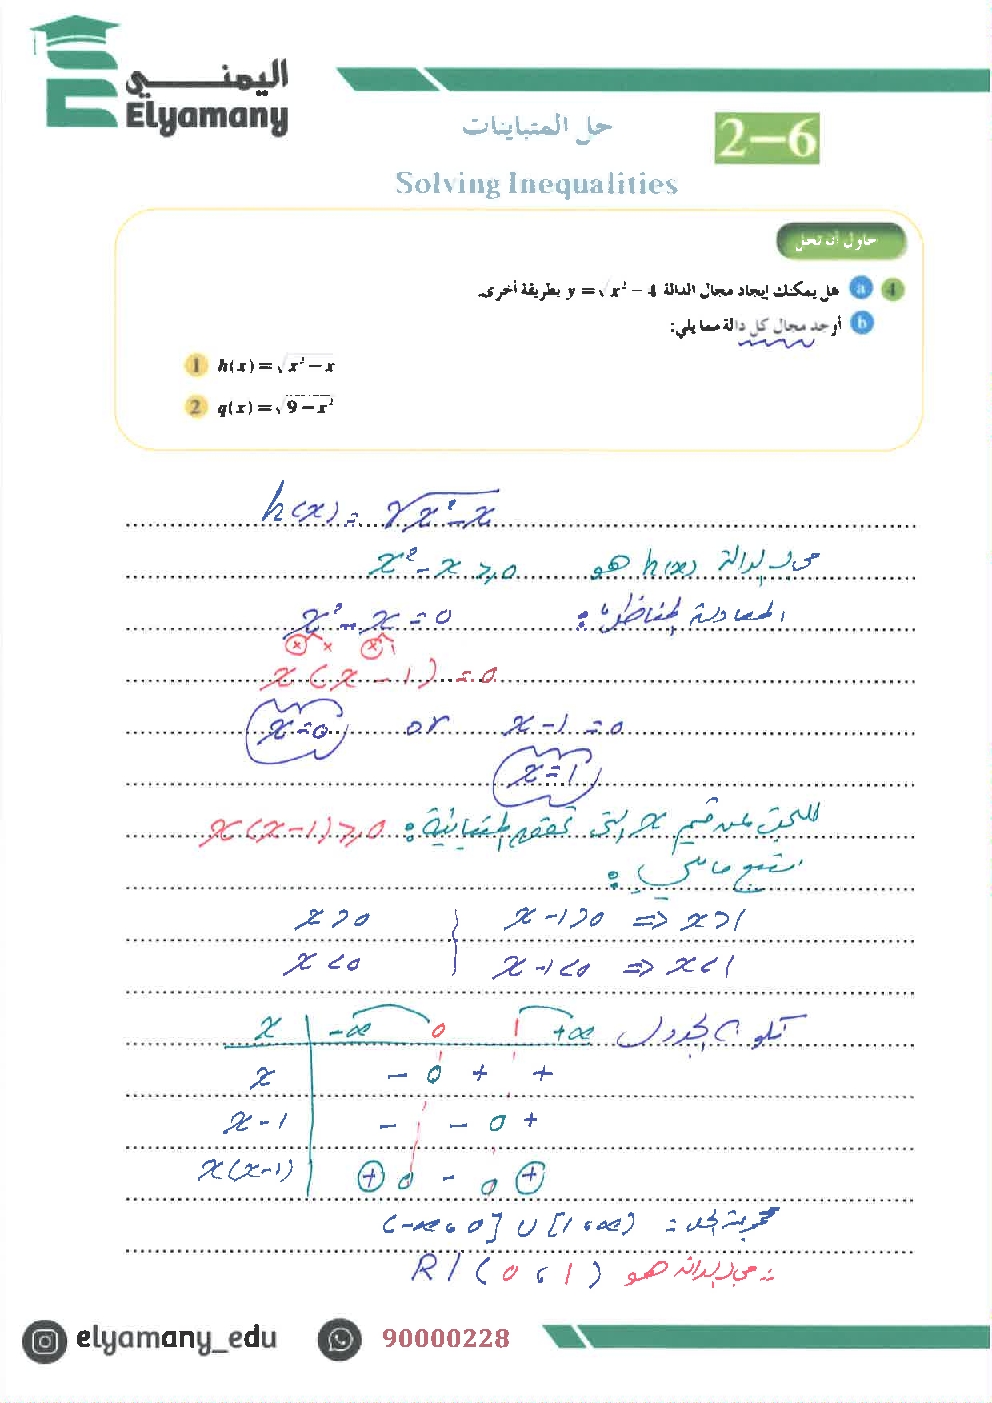 اليمني
Elyamany
حل المتباينات
2-6
Solving Inequalities
حاول أن تحل
4 a هل يمكنك إيجاد مجال الدالة y = √x² - 4 بطريقة أخرى.
b أوجد مجال كل دالة مما يلي:
1 h(x) = √x² - x
2 q(x) = √9 - x²
h(x) = √x² - x
مجال الدالة h(x) هو x² - x ≥ 0
المعادلة المناظرة: x² - x = 0
x(x - 1) = 0
x = 0 or x - 1 = 0
x = 1
للبحث عن قيم x التي تحقق المتباينة: x(x-1) ≥ 0
نتبع ما يلي:
x > 0 x - 1 > 0 ⇒ x > 1
x < 0 x - 1 < 0 ⇒ x < 1
x -∞ 0 1 +∞ الجدول
x - 0 + +
x - 1 - - 0 +
x(x-1) + 0 - 0 +
(-∞, 0] ∪ [1, ∞) =
∴ مجال الدالة هو R / (0, 1)
elyamany_edu
90000228